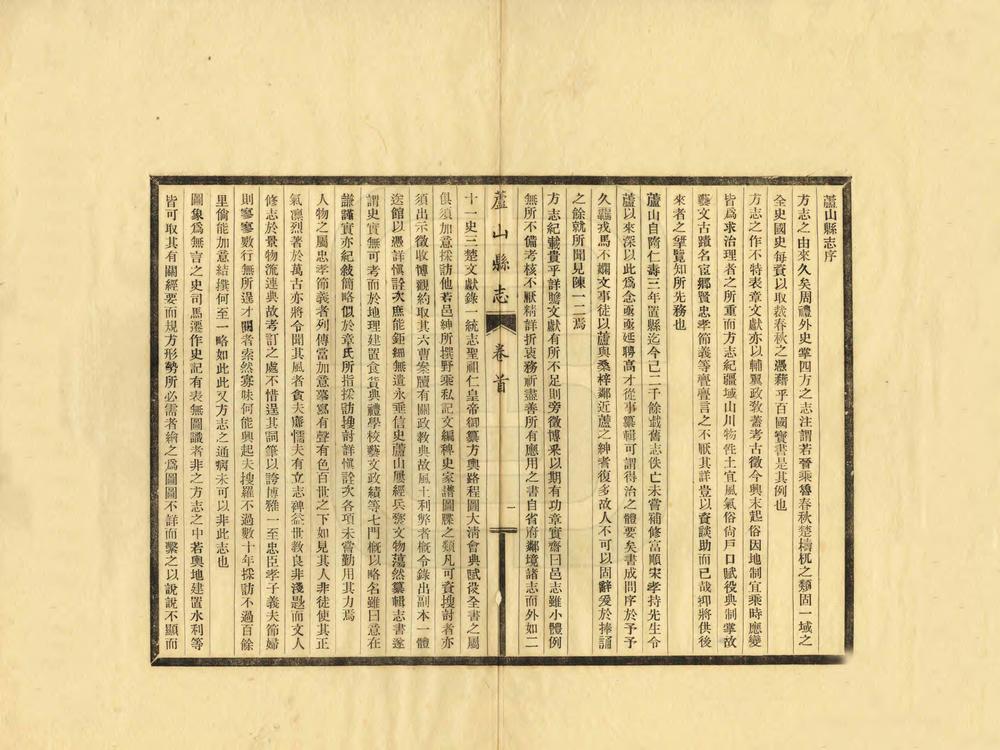 蘆山縣志序
方志之由來久矣周禮外史掌四方之志注謂若晉乘魯春秋楚檮杌之類固一域之
全史國史每資以取裁春秋之憑藉乎百國寶書是其例也
方志之作不特表章文獻亦以輔翼政敎蓄考古徵今興末起俗因地制宜乘時應變
皆爲求治理者之所重而方志紀疆域山川物性土宜風氣俗尙戶口賦役典制掌故
藝文古蹟名宦鄕賢忠孝節義等亹亹言之不厭其詳豈以資談助而已哉抑將供後
來者之掔覽知所先務也
蘆山自隋仁壽三年置縣迄今已二千餘載舊志佚亡未嘗補修富順宋孝持先生令
蘆以來深以此爲念亟亟延聘高才從事纂輯可謂得治之體要矣書成問序於予予
久羈戎馬不嫻文事徒以蘆與桑梓鄰近蘆之紳耆復多故人不可以固辭爰於捧誦
之餘就所聞見陳一二焉
方志紀載貴乎詳贍文有所不足則旁徵博釆以期有功章實齋曰邑志雖小體例
無所不備考核不厭精詳折衷務祈盡善所有應用之書自省府鄰境諸志而外如二
蘆山縣志 卷首 一
十一史三楚文獻錄一統志聖祖仁皇帝御纂方輿路程圖大淸會典賦役全書之屬
俱須加意採訪他若邑紳所撰野乘私記文編稗史家譜圖牒之類凡可資搜討者亦
須出示徵收博觀約取其六曹案牘有關政敎典故風土利弊者槪令錄出副本一體
送館以憑詳愼詮次庶能鉅細無遺永垂信史蘆山屢經兵燹文物蕩然纂輯志書遂
謂史實無可考而於地理建置食貨典禮學校藝文政績等七門槪以略名雖曰意在
謙謹實亦紀敍簡略似於章氏所指採訪搜討詳愼詮次各項未嘗勤用其力焉
人物之屬忠孝節義者列傳當加意摹寫有聲有色百世之下如見其人非徒使其正
氣凜烈著於萬古亦將令聞其風者貪夫廉懦夫有立志裨益世敎良非淺尠而文人
修志於景物流連典故考訂之處不惜逞其詞筆以誇博雅一至忠臣孝子義夫節婦
則寥寥數行無所逞才閱者索然寡味何能興起夫搜羅不過數十年採訪不過百餘
里倘能加意結撰何至一略如此此又方志之通病未可以非此志也
圖象爲無言之史司馬遷作史記有表無圖識者非之方志之中若輿地建置水利等
皆可取其有關經要而規方形勢所必需者繪之爲圖圖不詳而繫之以說說不顯而